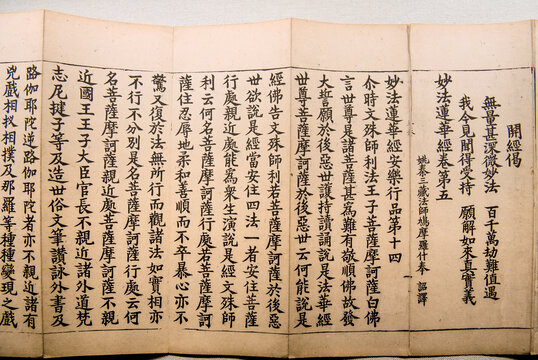 開經偈
無量甚深微妙法　百千萬劫難值遇
我今見聞得受持　願解如來真實義
妙法蓮華經卷第五
姚秦三藏法師鳩摩羅什奉　詔譯
妙法蓮華經安樂行品第十四
尒時文殊師利法王子菩薩摩訶薩白佛
言世尊是諸菩薩甚為難有敬順佛故發
大誓願於後惡世護持讀誦說是法華經
世尊菩薩摩訶薩於後惡世云何能說是
經佛告文殊師利若菩薩摩訶薩於後惡
世欲說是經當安住四法一者安住菩薩
行處親近處能為衆生演說是經文殊師
利云何名菩薩摩訶薩行處若菩薩摩訶
薩住忍辱地柔和善順而不卒暴心亦不
驚又復於法無所行而觀諸法如實相亦
不行不分別是名菩薩摩訶薩行處云何
名菩薩摩訶薩親近處菩薩摩訶薩不親
近國王王子大臣官長不親近諸外道梵
志尼揵子等及造世俗文筆讚詠外書及
路伽耶陀逆路伽耶陀者亦不親近諸有
兇戲相扠相撲及那羅等種種變現之戲